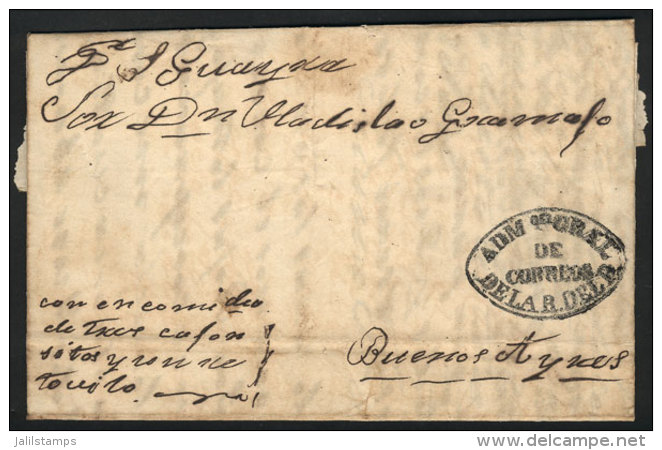 Pte. Guayra
Sor Dn Uladislao Gramajo
ADM on GRAL.
DE
CORREOS
DE LA R. DEL P.
con encomida
de tres cajon
sitos y un re
tovito.
Buenos Ayres
jalilstamps
delcampe.net